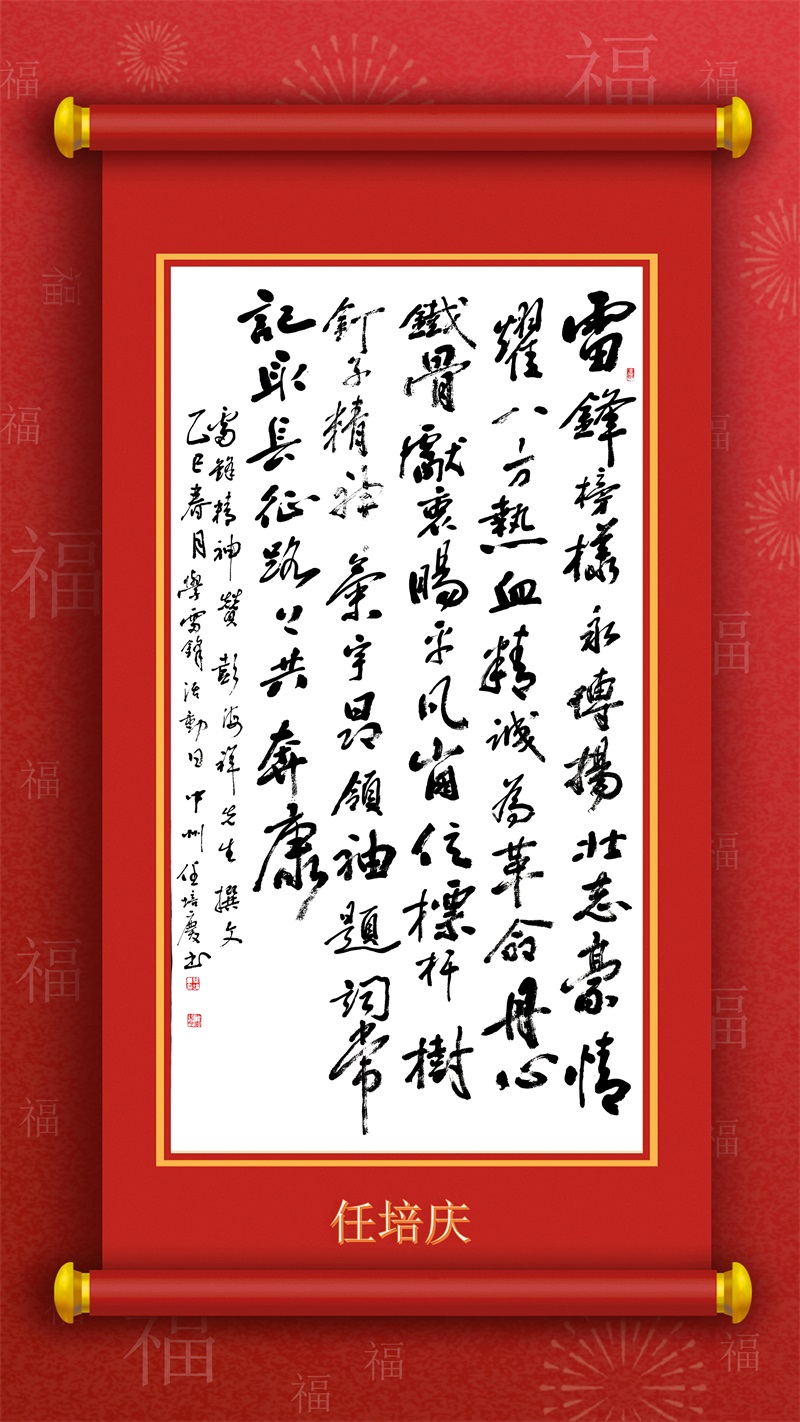 雷鋒榜樣永傳揚壯志豪情
耀八方熱血精誠為革命丹心
鐵骨獻衷腸平凡崗位標杆樹
釘子精神氣宇昂領袖題詞常
記取長征路上共奔康
雷鋒精神贊 彭海祥先生撰文
乙巳春月學雷鋒活動日 中州任培慶书
任培庆